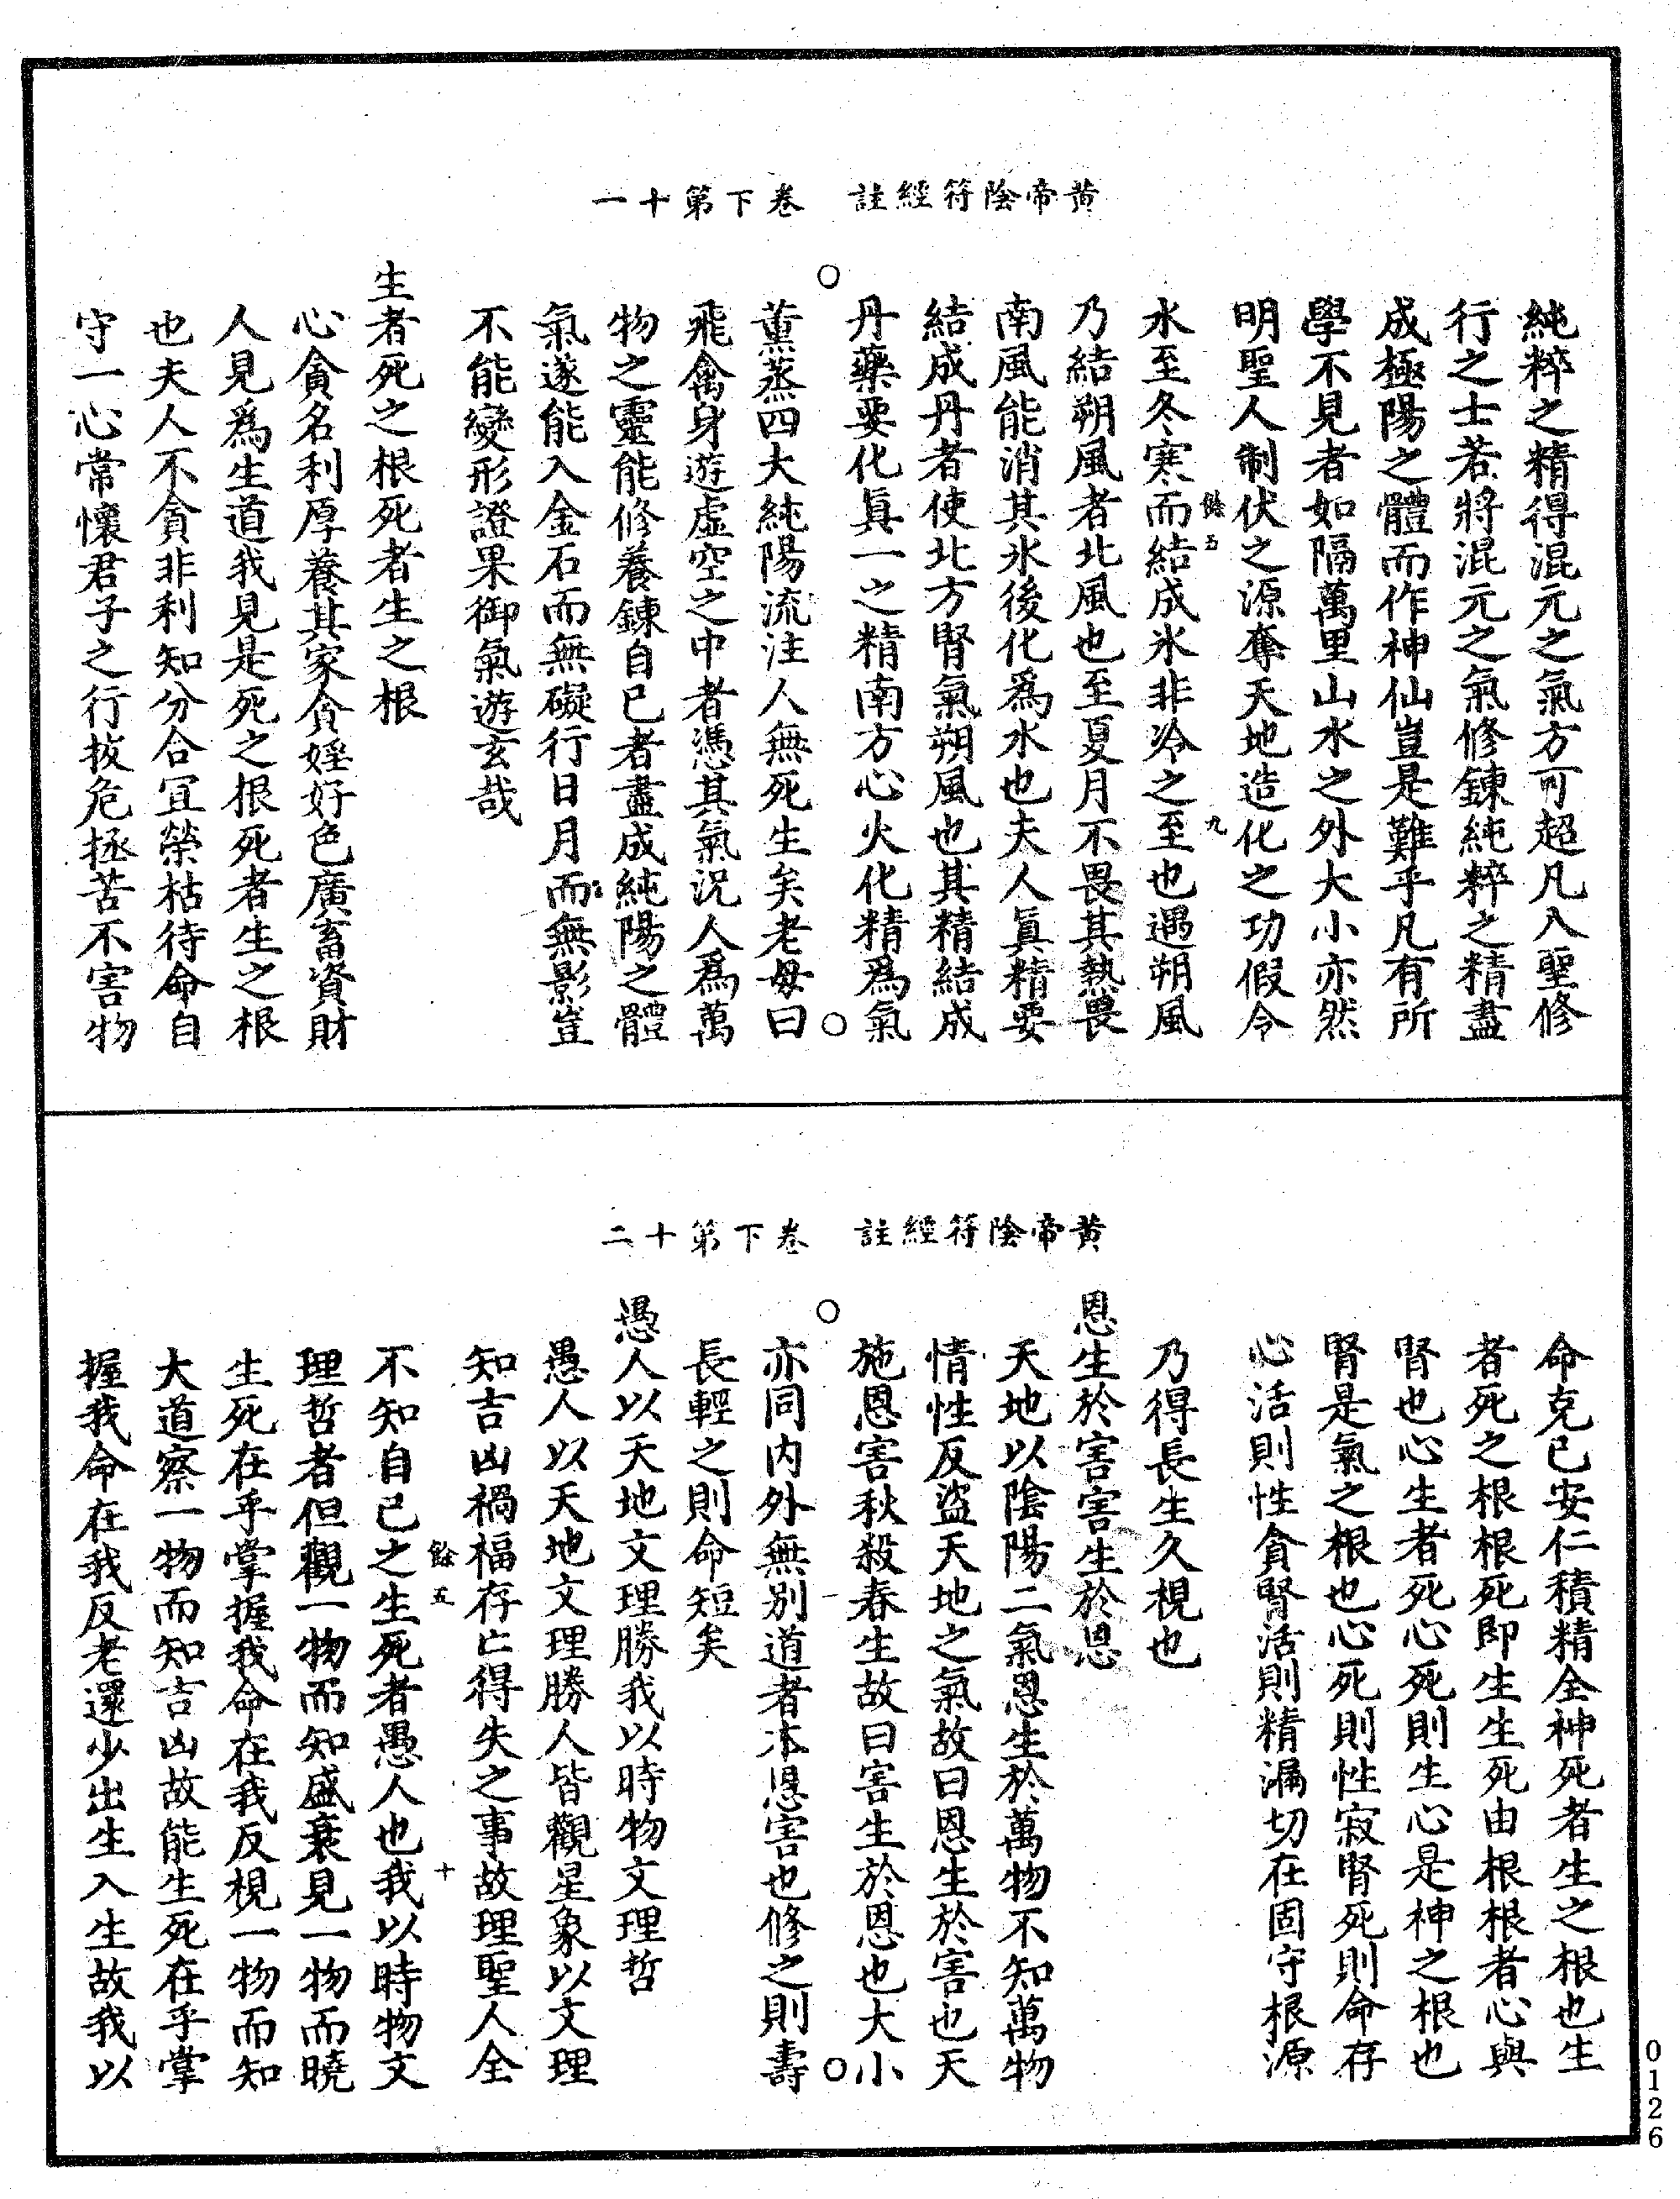 黄帝陰符經註　卷下第十一
純粹之精得混元之氣方可超凡入聖修
行之士若將混元之氣修鍊純粹之精盡
成極陽之體而作神仙豈是難乎凡有所
學不見者如隔萬里山水之外大小亦然
明聖人制伏之源奪天地造化之功假令
餘五　九
水至冬寒而結成氷非冷之至也遇朔風
乃結朔風者北風也至夏月不畏其熱畏
南風能消其氷後化爲水也夫人眞精要
結成丹者使北方腎氣朔風也其精結成
丹藥要化眞一之精南方心火化精爲氣
○　○
薰蒸四大純陽流注人無死生矣老母曰
飛禽身遊虛空之中者憑其氣況人爲萬
物之靈能修養鍊自己者盡成純陽之體
氣遂能入金石而無礙行日月而無影豈
不能變形證果御氣遊玄哉
生者死之根死者生之根
心貪名利厚養其家貪婬好色廣畜資財
人見爲生道我見是死之根死者生之根
也夫人不貪非利知分合宜榮枯待命自
守一心常懷君子之行拔危拯苦不害物
黄帝陰符經註　卷下第十二
命克已安仁積精全神死者生之根也生
者死之根根死即生生死由根根者心與
腎也心生者死心死則生心是神之根也
腎是氣之根也心死則性寂腎死則命存
心活則性貪腎活則精漏切在固守根源
乃得長生久視也
恩生於害害生於恩
天地以陰陽二氣恩生於萬物不知萬物
情性反盜天地之氣故曰恩生於害也天
施恩害秋殺春生故曰害生於恩也大小
○　○
亦同内外無別道者本恩害也修之則壽
長輕之則命短矣
愚人以天地文理勝我以時物文理哲
愚人以天地文理勝人皆觀星象以文理
知吉凶禍福存亡得失之事故理聖人全
餘五　十
不知自己之生死者愚人也我以時物文
理哲者但觀一物而知盛衰見一物而曉
生死在乎掌握我命在我反視一物而知
大道察一物而知吉凶故能生死在乎掌
握我命在我反老還少出生入生故我以
0126